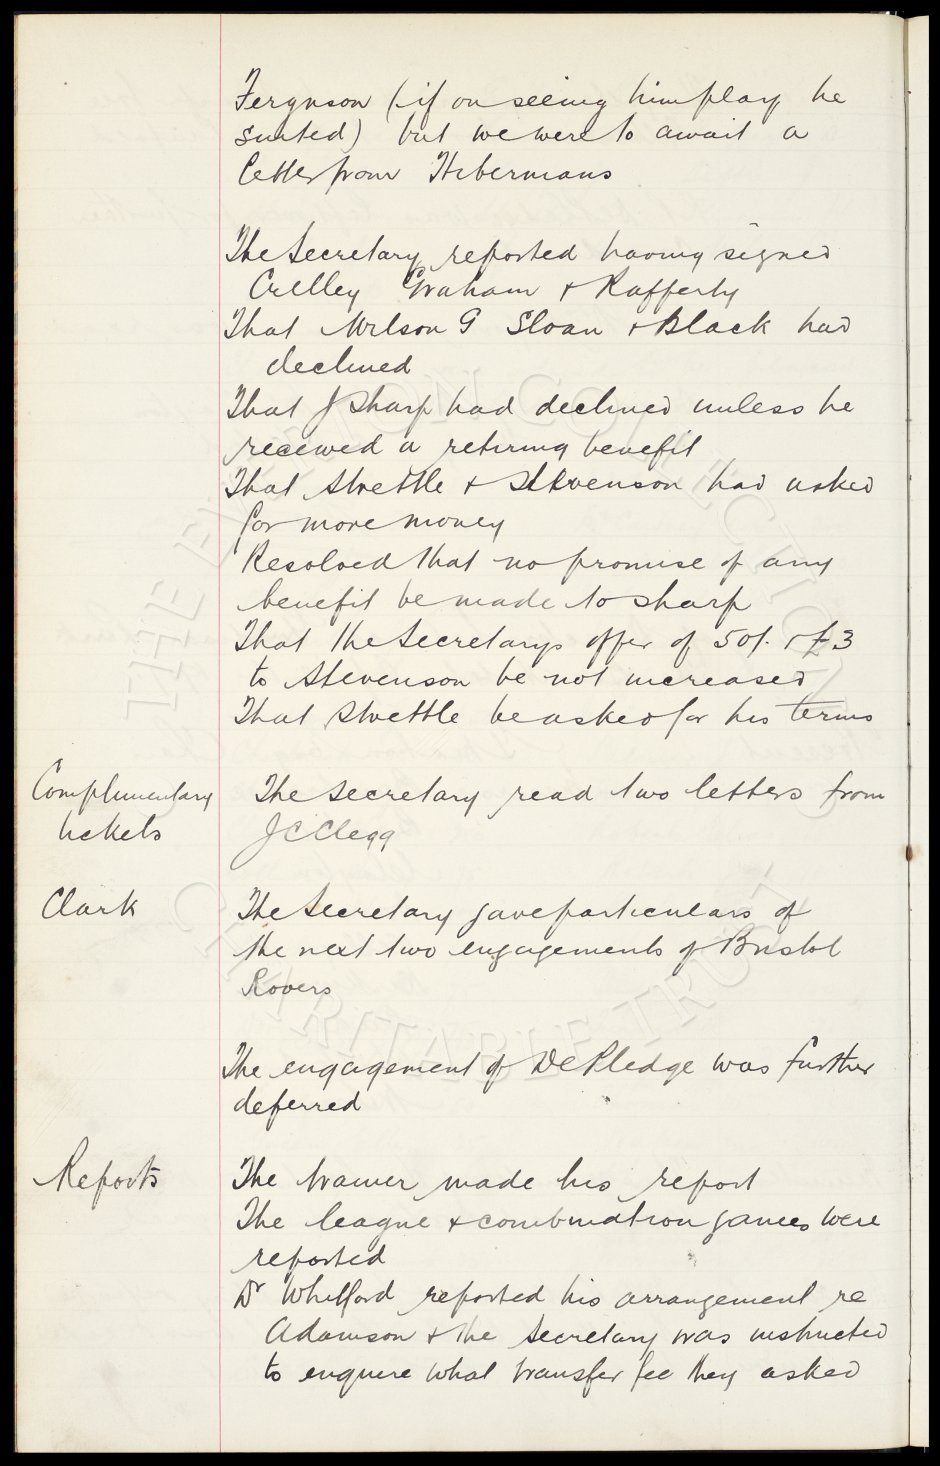 Ferguson (if on seeing him play he
suited) but we were to await a
letter from Hibernians
The Secretary reported having signed
Crelley Graham & Rafferty
That Wilson G Sloan & Black had
declined
That J Sharp had declined unless he
received a retiring benefit
That Strettle & Stevenson had asked
for more money
Resolved that no promise of any
benefit be made to Sharp
That the Secretarys offer of 50/- & £3
to Stevenson be not increased
That Strettle be asked for his terms
Complimentary
tickets
The Secretary read two letters from
J C Clegg
Clark
The Secretary gave particulars of
the next two engagements of Bristol
Rovers
The engagement of De Pledge was further
deferred
Reports
The trainer made his report
The league & combination games were
reported
Dr Whitford reported his arrangement re
Adamson & the Secretary was instructed
to enquire what transfer fee they asked
THE EVERTON COLLECTION
CHARITABLE TRUST